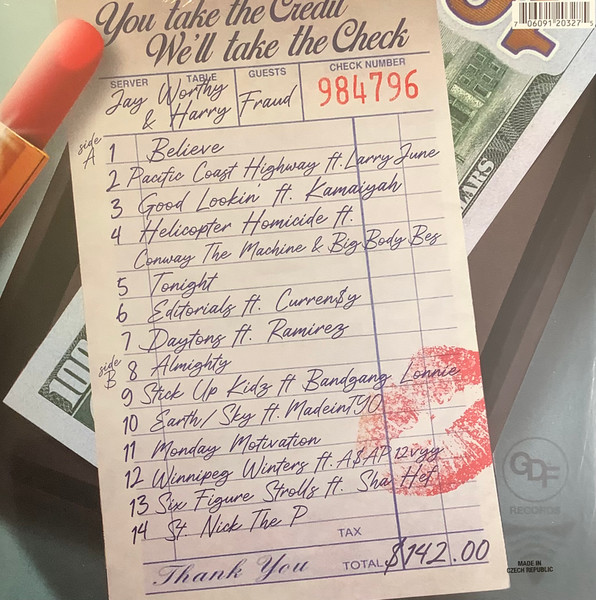 You take the Credit
We'll take the Check
7 06091 20327 5
SERVER TABLE GUESTS CHECK NUMBER
Jay Worthy
& Harry Fraud
984796
side A
1 Believe
2 Pacific Coast Highway ft. Larry June
3 Good Lookin' ft. Kamaiyah
4 Helicopter Homicide ft.
Conway The Machine & Big Body Bes
5 Tonight
6 Editorials ft. Curren$y
7 Daytons ft. Ramirez
side B
8 Almighty
9 Stick Up Kidz ft Bandgang Lonnie
10 Earth/Sky ft. MadeinTYO
11 Monday Motivation
12 Winnipeg Winters ft. A$AP 12vyy
13 Six Figure Strolls ft. Sha Hef
14 St. Nick The P
TAX
Thank You TOTAL $142.00
100
LARS
GDF
RECORDS
MADE IN
CZECH REPUBLIC